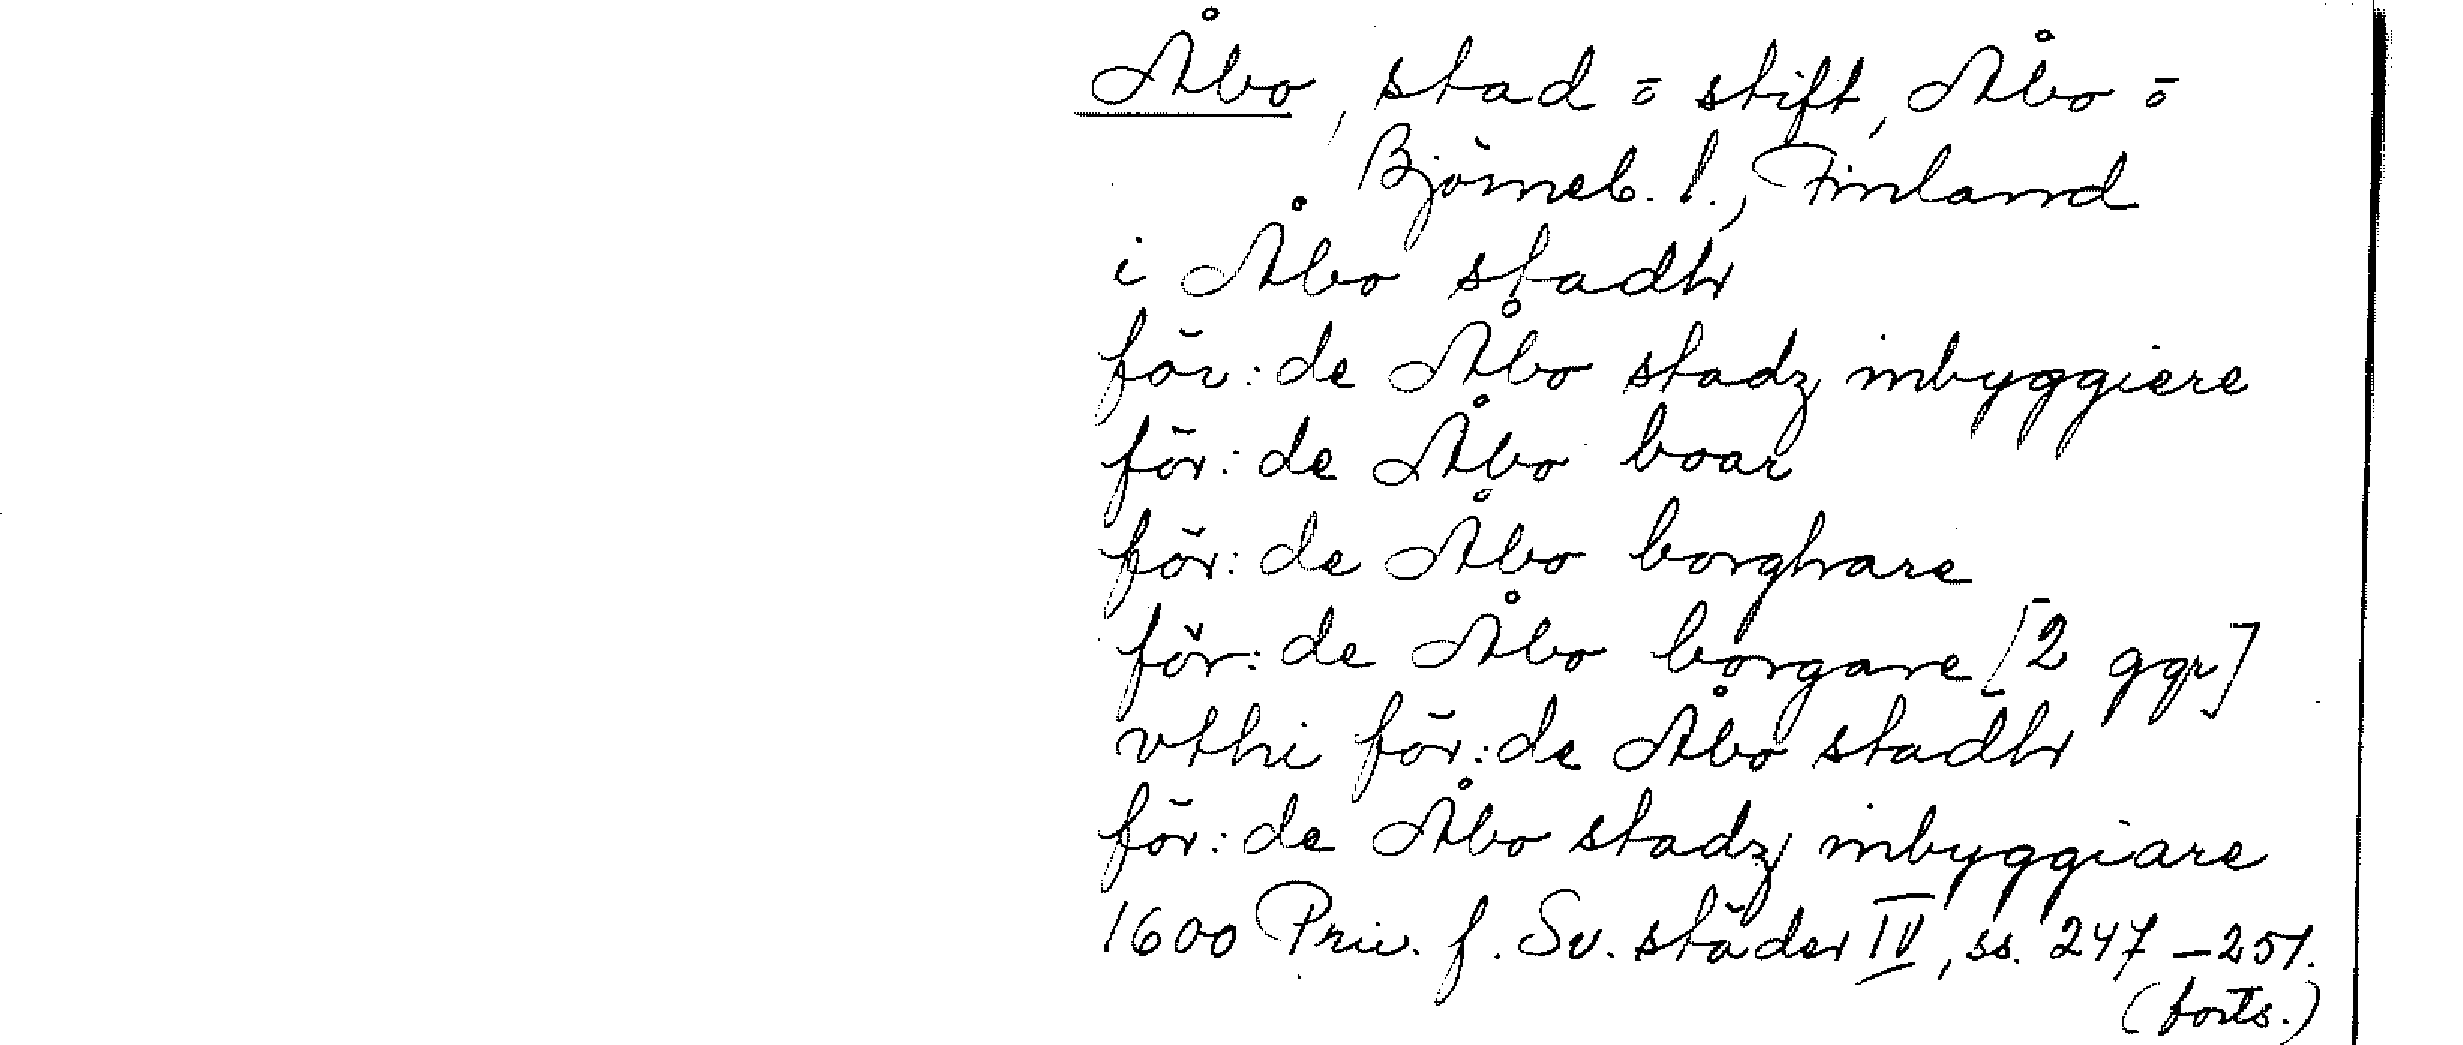 Åbo, stad o stift, Åbo o
Björneb. l., Finland
i Åbo stadh
för:de Åbo stadz inbyggiere
för:de Åbo boar
för:de Åbo borghare
för:de Åbo borgare [2 ggr]
vthi för:de Åbo stadh
för:de Åbo stadz inbyggiare
1600 Priv. f. Sv. städer IV, ss. 247–251.
(forts.)